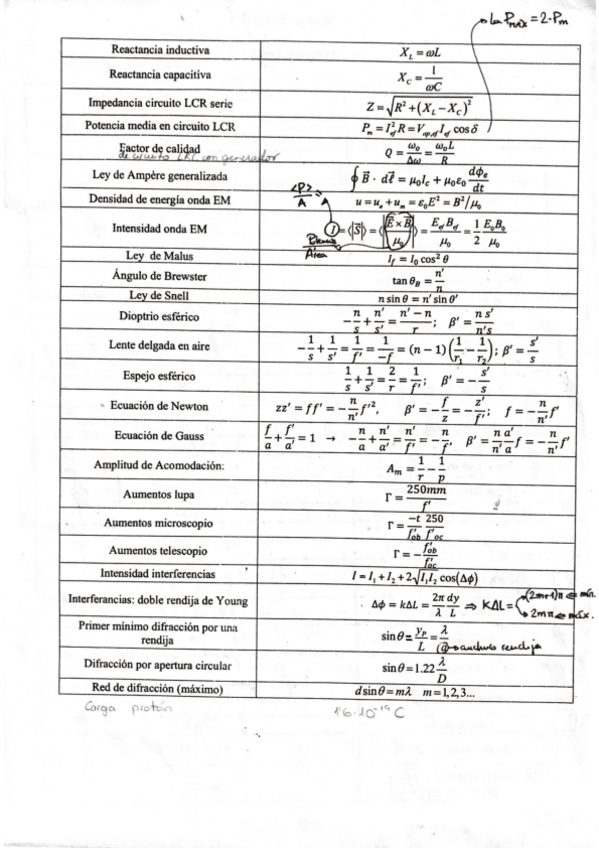 ↳ la Pmáx = 2·Pm
Reactancia inductiva X_L = ωL
Reactancia capacitiva X_C = 1/(ωC)
Impedancia circuito LCR serie Z = √(R² + (X_L − X_C)²)
Potencia media en circuito LCR P_m = I²_ef R = V_ap,ef I_ef cos δ
Factor de calidad Q = ω₀/Δω = ω₀L/R
de circuito LRC con generador
Ley de Ampère generalizada ∮ B⃗ · dℓ⃗ = μ₀I_c + μ₀ε₀ dϕ_e/dt
Densidad de energía onda EM u = u_e + u_m = ε₀E² = B²/μ₀
<P>/A =
Intensidad onda EM I = ⟨|S⃗|⟩ = ⟨|E⃗ × B⃗/μ₀|⟩ = E_ef B_ef/μ₀ = 1/2 E₀B₀/μ₀
Potencia/Área
Ley de Malus I_f = I₀ cos² θ
Ángulo de Brewster tan θ_B = n'/n
Ley de Snell n sin θ = n' sin θ'
Dioptrio esférico −n/s + n'/s' = (n' − n)/r; β' = n s'/n's
Lente delgada en aire −1/s + 1/s' = 1/f' = 1/−f = (n − 1)(1/r₁ − 1/r₂); β' = s'/s
Espejo esférico 1/s + 1/s' = 2/r = 1/f'; β' = −s'/s
Ecuación de Newton zz' = ff' = −n/n' f'², β' = −f/z = −z'/f'; f = −n/n' f'
Ecuación de Gauss f/a + f'/a' = 1 → −n/a + n'/a' = n'/f' = −n/f, β' = n a'/n' a f = −n/n' f'
Amplitud de Acomodación: A_m = 1/r − 1/p
Aumentos lupa Γ = 250mm/f'
Aumentos microscopio Γ = −t/f'_ob 250/f'_oc
Aumentos telescopio Γ = −f'_ob/f'_oc
Intensidad interferencias I = I₁ + I₂ + 2√(I₁I₂) cos(Δϕ)
Interferancias: doble rendija de Young Δϕ = kΔL = 2π/λ dy/L ⇒ KΔL = (2m+1)π ⇐ mín.
2mπ ⇐ máx.
Primer mínimo difracción por una rendija sin θ = y_p/L = λ/a → anchura rendija
Difracción por apertura circular sin θ = 1.22 λ/D
Red de difracción (máximo) d sin θ = mλ m = 1,2,3...
Carga protón 1'6·10⁻¹⁹ C